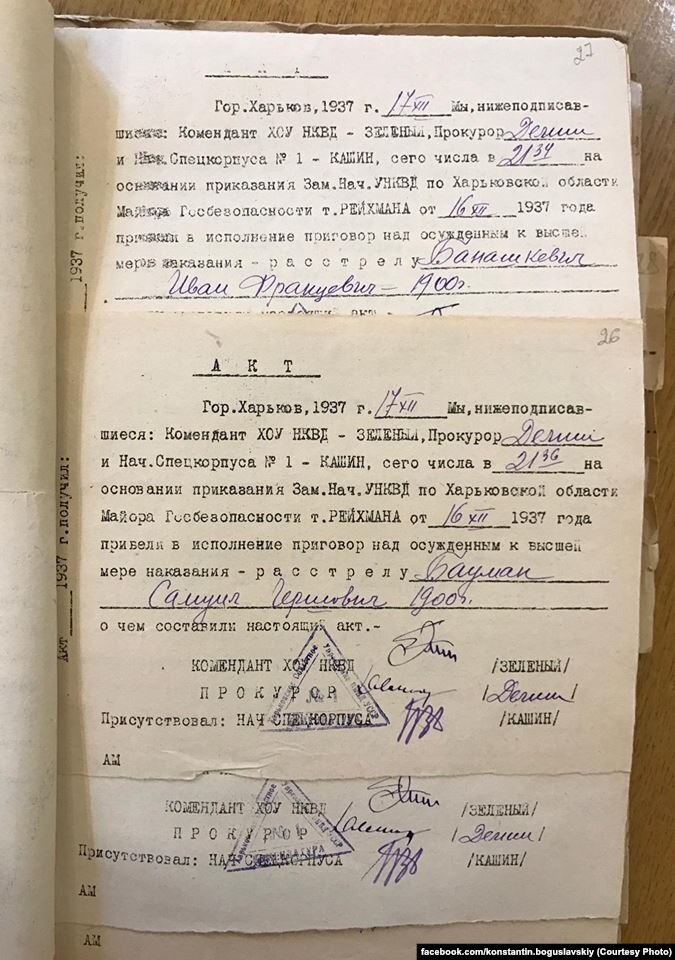 27
А К Т
Гор.Харьков,1937 г. 17/XII Мы,нижеподписав-
шиеся: Комендант ХОУ НКВД - ЗЕЛЕНЫЙ,Прокурор
и Нач.Спецкорпуса № 1 - КАШИН, сего числа в 21 34 на
основании приказания Зам.Нач.УНКВД по Харьковской области
Майора Госбезопасности т.РЕЙХМАНА от 16/XII 1937 года
привели в исполнение приговор над осужденным к высшей
мере наказания - р а с с т р е л у Банашкевич
Иван Францевич - 1900г.
26
А К Т
Гор.Харьков,1937 г. 17/XII Мы,нижеподписав-
шиеся: Комендант ХОУ НКВД - ЗЕЛЕНЫЙ,Прокурор
и Нач.Спецкорпуса № 1 - КАШИН, сего числа в 21 36 на
основании приказания Зам.Нач.УНКВД по Харьковской области
Майора Госбезопасности т.РЕЙХМАНА от 16/XII 1937 года
привели в исполнение приговор над осужденным к высшей
мере наказания - р а с с т р е л у Бауман
Самуил Гершович 1900г.
о чем составили настоящий акт.-
КОМЕНДАНТ ХОУ НКВД /ЗЕЛЕНЫЙ/
П Р О К У Р О Р
Присутствовал: НАЧ СПЕЦКОРПУСА /КАШИН/
АМ
КОМЕНДАНТ ХОУ НКВД /ЗЕЛЕНЫЙ/
П Р О К У Р О Р
Присутствовал: НАЧ СПЕЦКОРПУСА /КАШИН/
АМ
АМ
1937 г.получил:
Акт 1937 г.получил:
facebook.com/konstantin.boguslavskiy (Courtesy Photo)